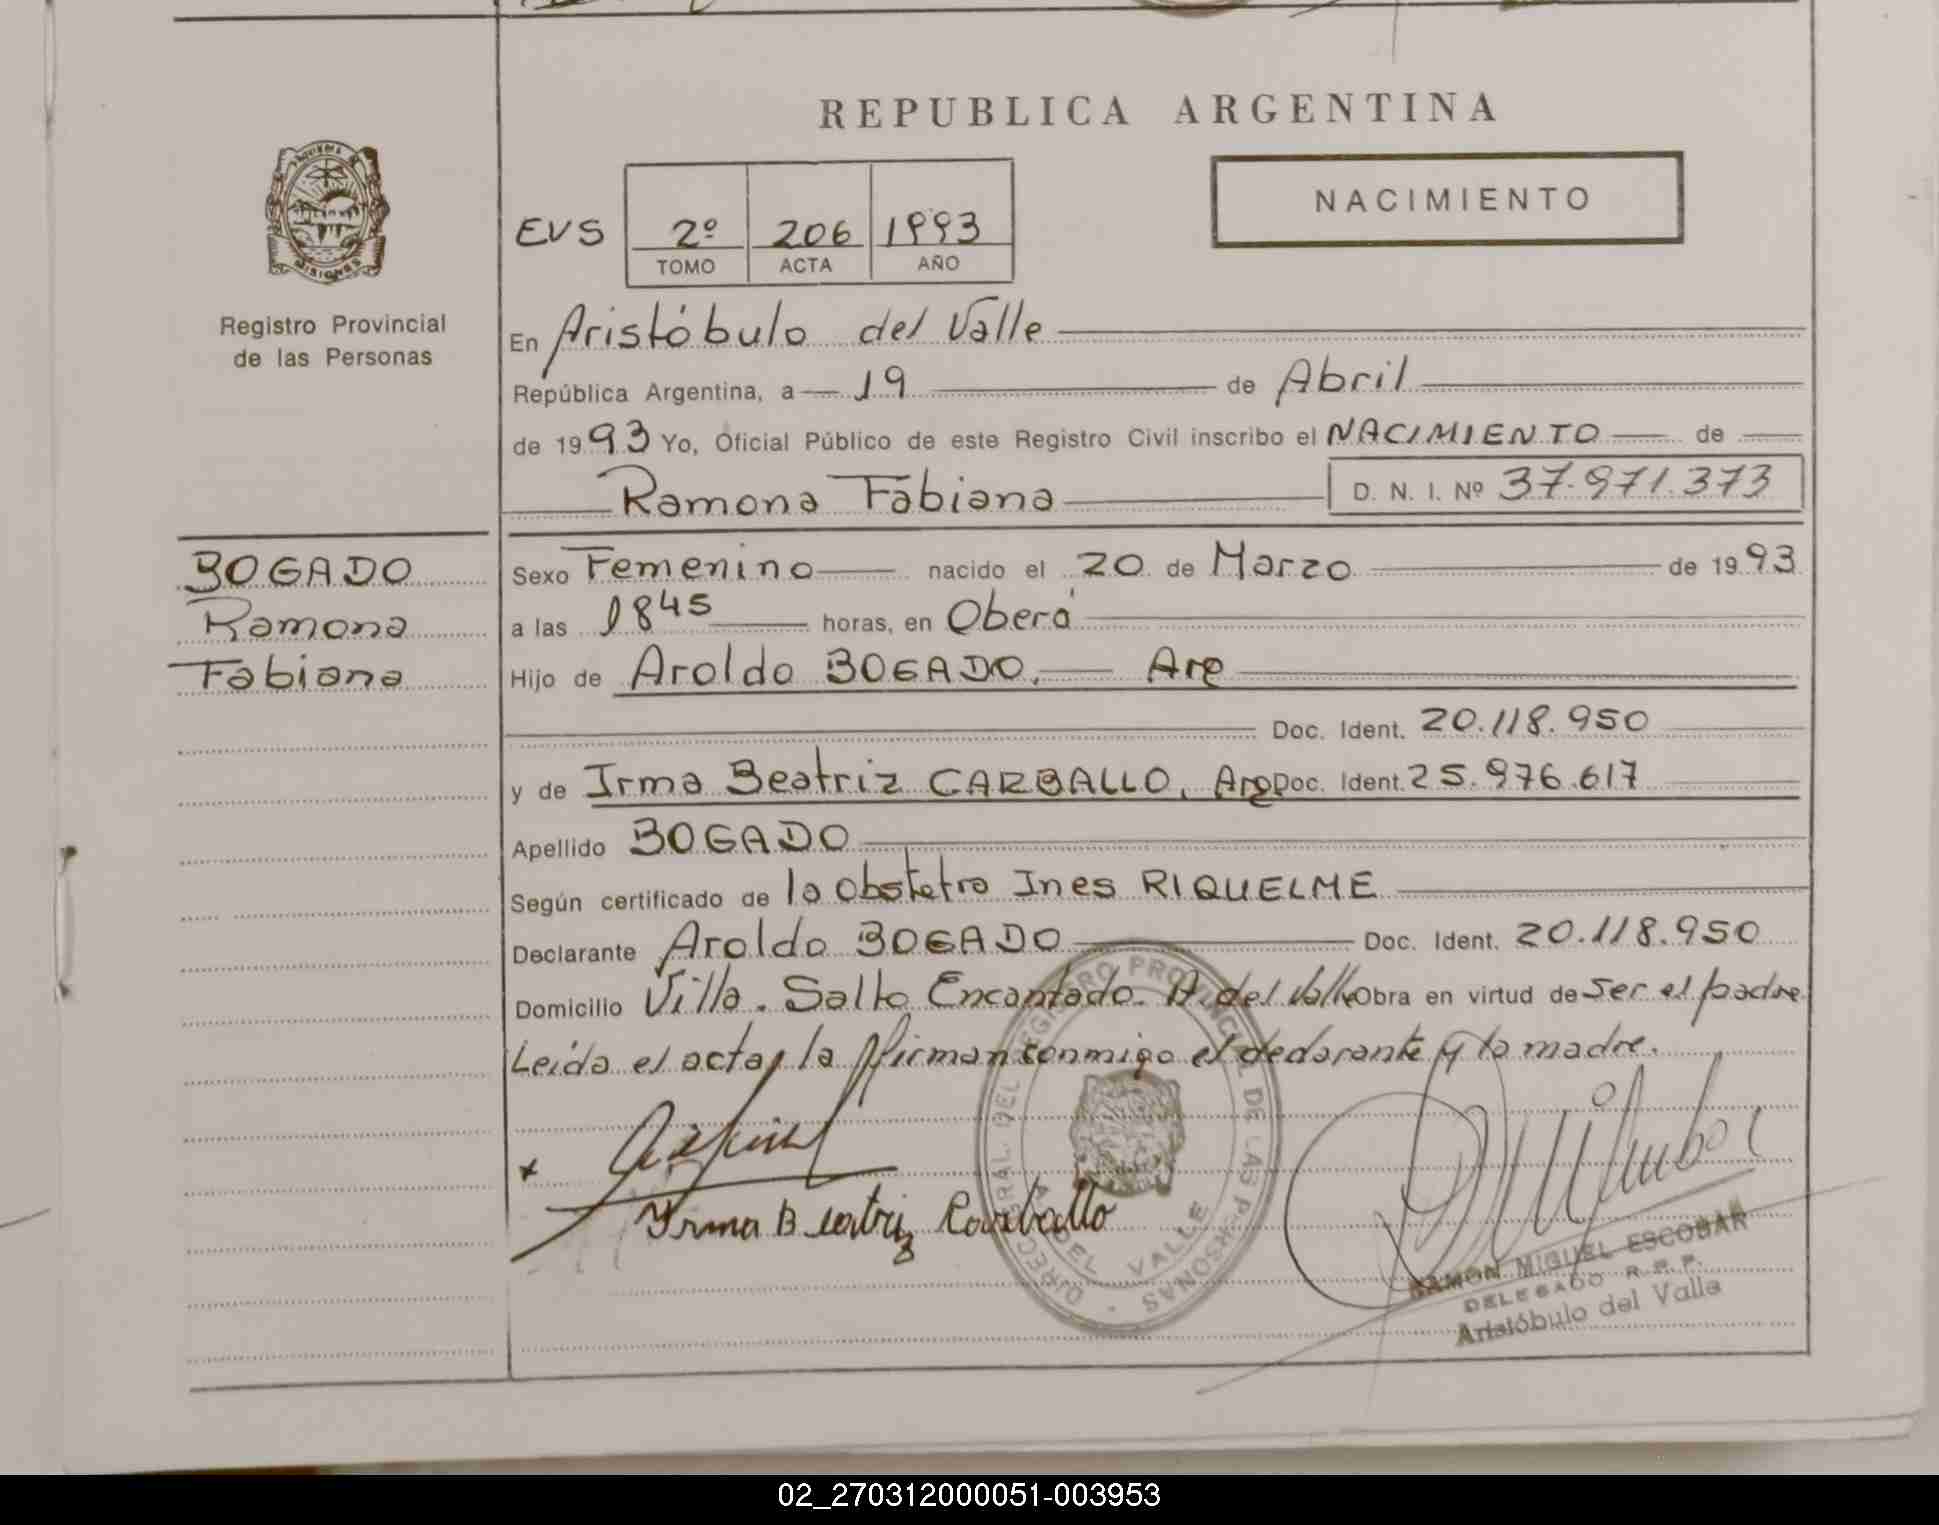 REPUBLICA ARGENTINA
NACIMIENTO
EVS 2º 206 1993
TOMO ACTA AÑO
MISIONES
Registro Provincial
de las Personas
En Aristóbulo del Valle
República Argentina, a 19 de Abril
de 1993 Yo, Oficial Público de este Registro Civil inscribo el NACIMIENTO de
Ramona Fabiana D. N. I. Nº 37.971.373
BOGADO
Ramona
Fabiana
Sexo Femenino nacido el 20 de Marzo de 1993
a las 1845 horas, en Oberá
Hijo de Aroldo BOGADO. Arg
Doc. Ident. 20.118.950
y de Irma Beatriz CARBALLO, Arg Doc. Ident. 25.976.617
Apellido BOGADO
Según certificado de la Obstetra Ines RIQUELME
Declarante Aroldo BOGADO Doc. Ident. 20.118.950
Domicilio Villa. Salto Encantado. A. del Valle Obra en virtud de ser el padre
Leída el acta, la firman conmigo el declarante y la madre.
Irma Beatriz Carballo
REGISTRO PROVINCIAL DE LAS PERSONAS
A. DEL VALLE
RAMON MIGUEL ESCOBAR
DELEGADO R. P. P.
Aristóbulo del Valle
02_270312000051-003953